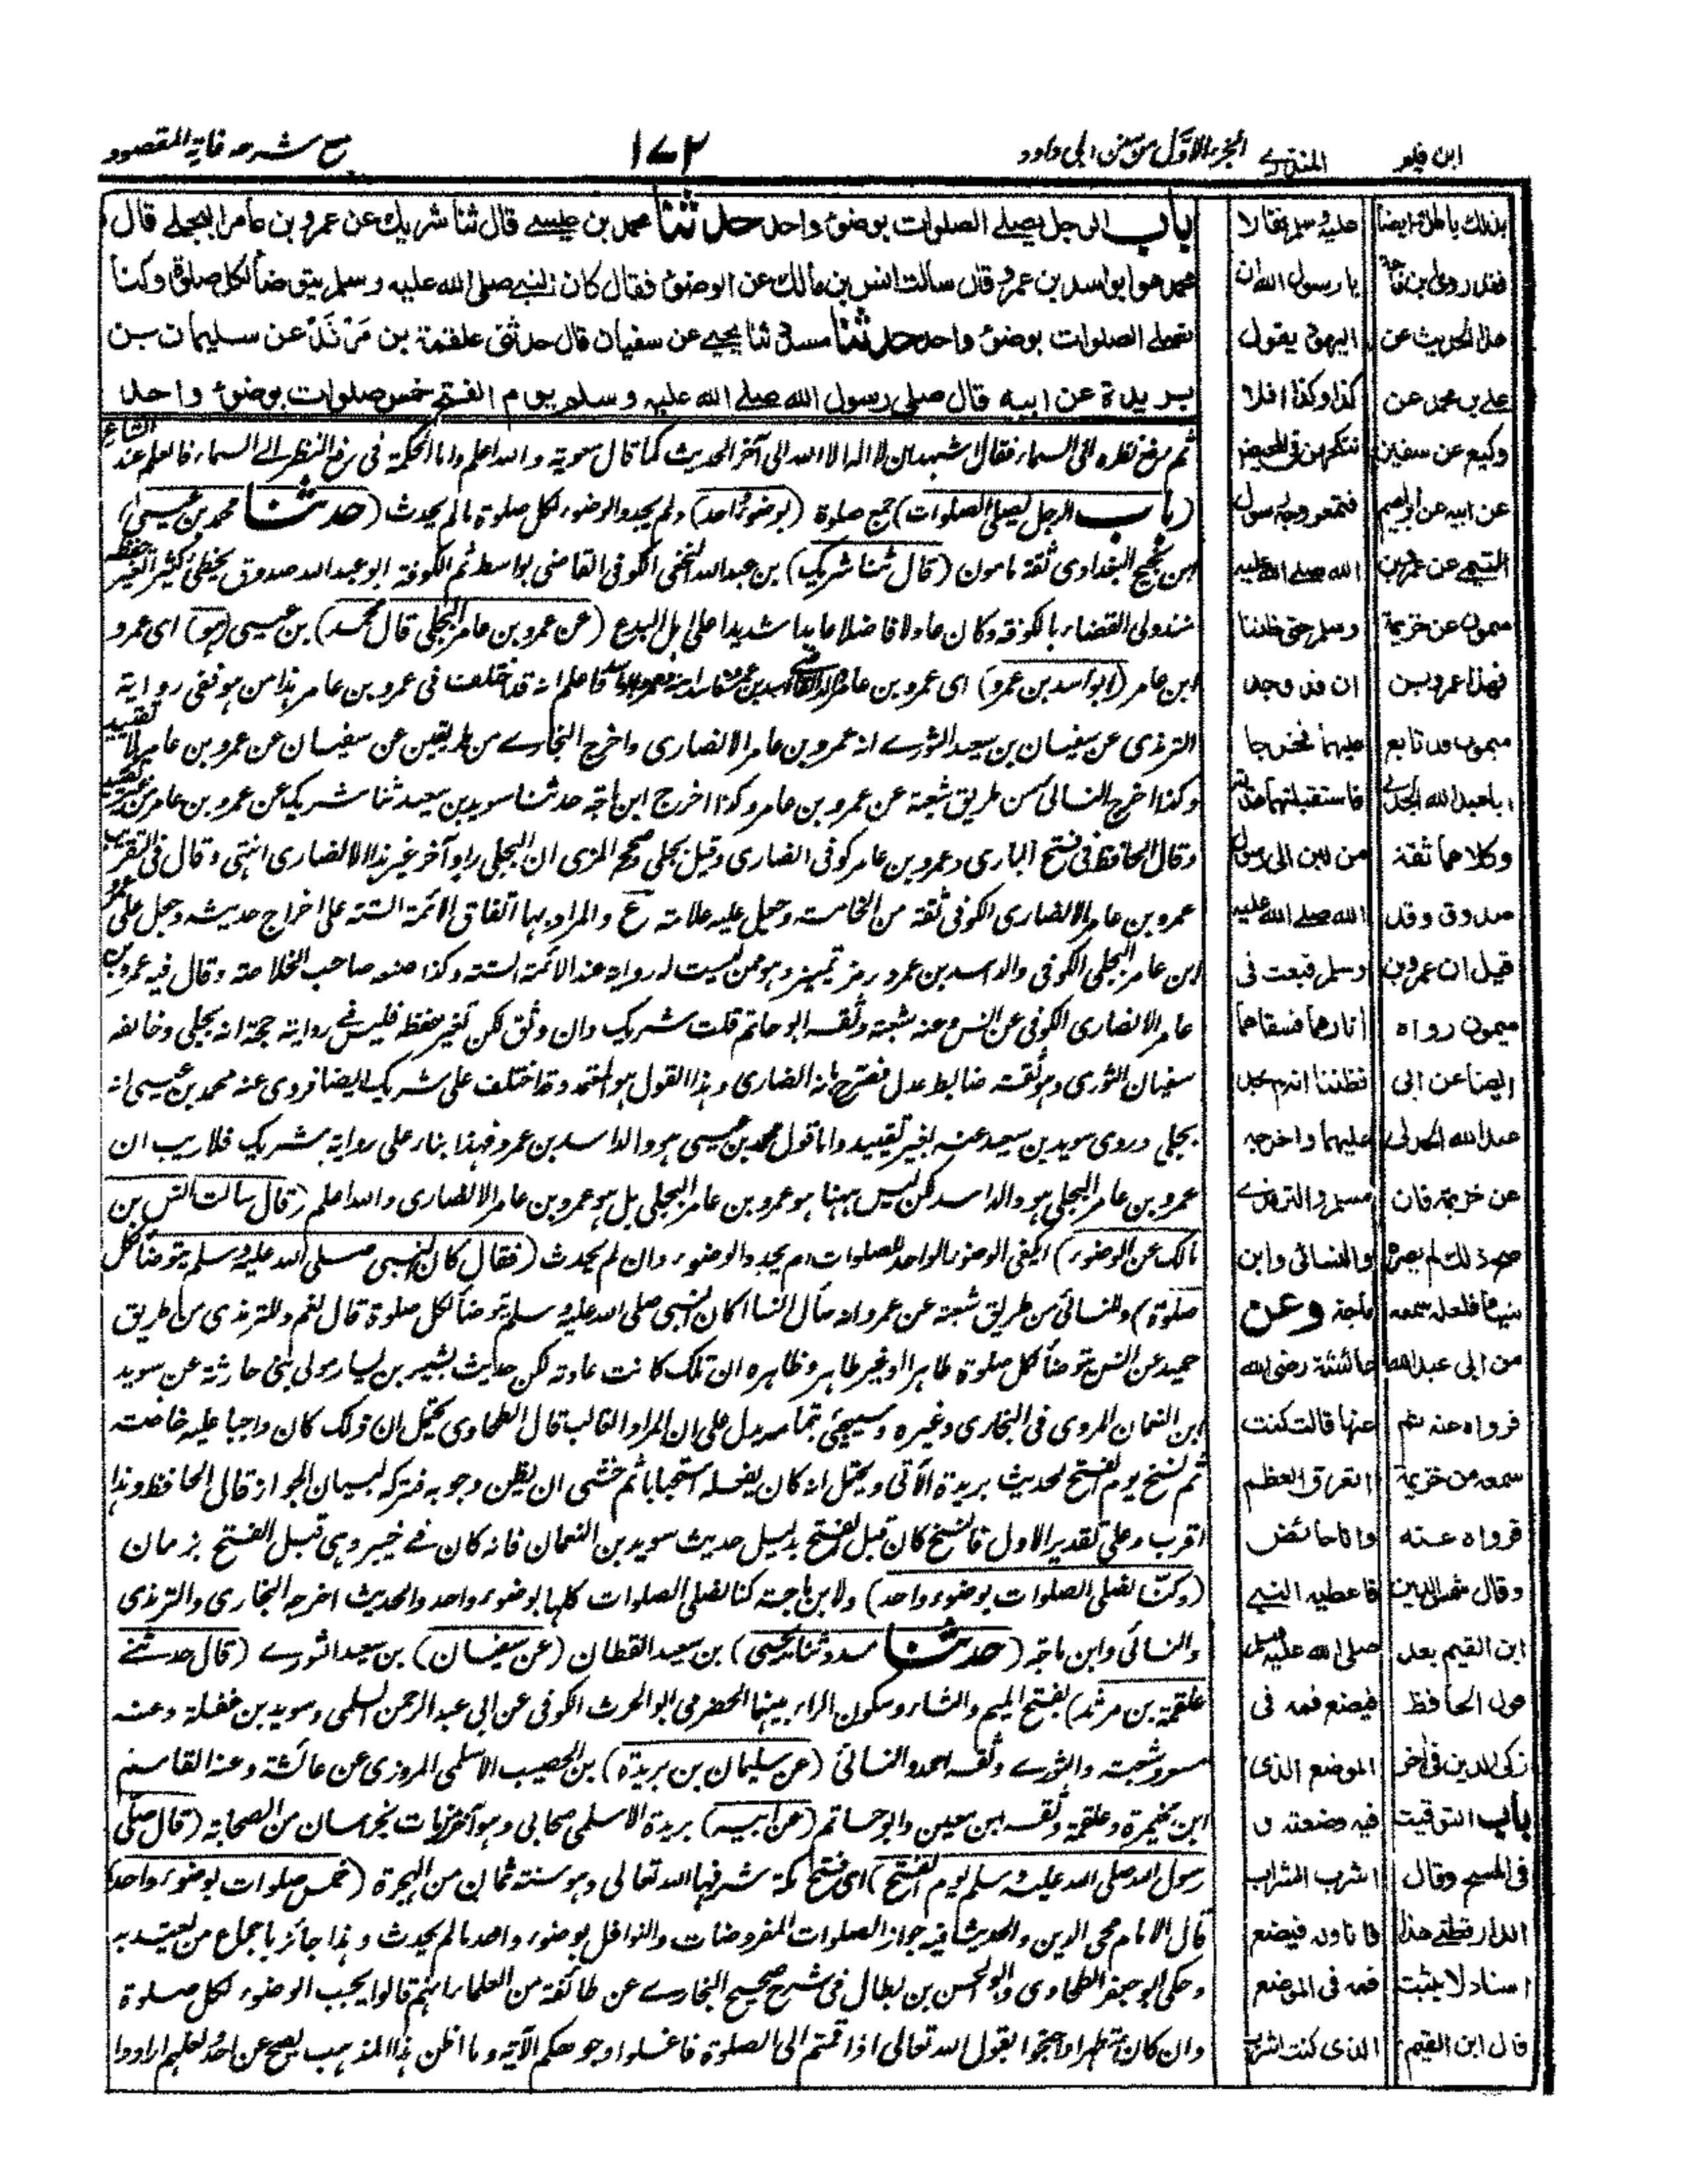 ابن قيم
المنذري
الجزء الاول من سنن ابي داود
١٧٢
مع شرحه غاية المقصود
باب الرجل يصلي الصلوات بوضوء واحد حدثنا محمد بن عيسى قال ثنا شريك عن عمرو بن عامر البجلي قال
محمد هو ابو اسد بن عمرو قال سألت انس بن مالك عن الوضوء فقال كان النبي صلى الله عليه وسلم يتوضأ لكل صلوة وكنا
نصلي الصلوات بوضوء واحد حدثنا مسدد ثنا يحيى عن سفيان قال حدثني علقمة بن مرثد عن سليمان بن
بريدة عن ابيه قال صلى رسول الله صلى الله عليه وسلم يوم الفتح خمس صلوات بوضوء واحد
ثم رفع نظره الى السماء فقال اشهد ان لا اله الا الله الى آخر الحديث كما قال معوية والله اعلم واما الحكمة في رفع النظر الى السماء فالعلم عند الشارع
(باب الرجل يصلي الصلوات) جمع صلوة (بوضوء واحد) ولم يجدد الوضوء لكل صلوة ما لم يحدث (حدثنا محمد بن عيسى)
ابن نجيح البغدادي ثقة مامون (قال ثنا شريك) بن عبدالله النخعي الكوفي القاضي بواسط ثم الكوفة ابو عبدالله صدوق يخطئ كثيرا تغير حفظه
منذ ولي القضاء بالكوفة وكان عادلا فاضلا عابدا شديدا على اهل البدع (عن عمرو بن عامر البجلي قال محمد) بن عيسى (هو) اى عمرو
ابن عامر (ابو اسد بن عمرو) اى عمرو بن عامر فاعلم انه قد اختلف في عمرو بن عامر هذا من هو ففي رواية
الترمذي عن سفيان بن سعيد الثوري انه عمرو بن عامر الانصاري واخرج البخاري من طريقين عن سفيان عن عمرو بن عامر بلا تقييد
وكذا اخرج النسائي من طريق شعبة عن عمرو بن عامر وكذا اخرج ابن ماجة حدثنا سويد بن سعيد ثنا شريك عن عمرو بن عامر من غير تقييد
وقال الحافظ في فتح الباري وعمرو بن عامر كوفي انصاري وقيل بجلي وصحح المزي ان البجلي راو آخر غير هذا الانصاري انتهى وقال في التقريب
عمرو بن عامر الانصاري الكوفي ثقة من الخامسة وجعل عليه علامة ع والمراد بها اتفاق الائمة الستة على اخراج حديثه وجعل على عمرو
ابن عامر البجلي الكوفي والد اسد بن عمرو رمز تمييز وهو ممن ليست له رواية عند الائمة الستة وكذا صنعه صاحب الخلاصة وقال فيه عمرو بن
عامر الانصاري الكوفي عن انس وعنه شعبة وثقه ابو حاتم قلت شريك وان وثق لكن تغير حفظه فليس في روايته حجة انه بجلي وخالفه
سفيان الثوري وهو ثقة ضابط عدل فصرح بانه انصاري وهذا القول هو المعتمد وقد اختلف على شريك ايضا فروى عنه محمد بن عيسى انه
بجلي وروى سويد بن سعيد عنه بغير تقييد واما قول محمد بن عيسى هو والد اسد بن عمرو فهذا بناء على رواية شريك فلا ريب ان
عمرو بن عامر البجلي هو والد اسد لكن ليس ههنا هو عمرو بن عامر البجلي بل هو عمرو بن عامر الانصاري والله اعلم (قال سالت انس بن
مالك عن الوضوء) ايكفي الوضوء الواحد للصلوات ام يجدد الوضوء وان لم يحدث (فقال كان النبي صلى الله عليه وسلم يتوضأ لكل
صلوة) وللنسائي من طريق شعبة عن عمرو انه سأل انسا اكان النبي صلى الله عليه وسلم يتوضأ لكل صلوة قال نعم وللترمذي من طريق
حميد عن انس يتوضأ لكل صلوة طاهرا او غير طاهر وظاهره ان تلك كانت عادته لكن حديث بشير بن يسار مولى بني حارثة عن سويد
ابن النعمان المروي في البخاري وغيره وسيجئ بتمامه يدل على ان المراد الغالب قال الطحاوي يحتمل ان ذلك كان واجبا عليه خاصة
ثم نسخ يوم الفتح لحديث بريدة الآتي ويحتمل انه كان يفعله استحبابا ثم خشى ان يظن وجوبه فتركه لبيان الجواز قال الحافظ وهذا
اقرب وعلى تقدير الاول فالنسخ كان قبل الفتح بدليل حديث سويد بن النعمان فانه كان في خيبر وهي قبل الفتح بزمان
(وكنا نصلي الصلوات بوضوء واحد) ولابن ماجة كنا نصلي الصلوات كلها بوضوء واحد والحديث اخرجه البخاري والترمذي
والنسائي وابن ماجه (حدثنا مسدد ثنا يحيى) بن سعيد القطان (عن سفيان) بن سعيد الثوري (قال حدثني
علقمة بن مرثد) بفتح الميم والثاء وسكون الراء بينهما الحضرمي ابو الحرث الكوفي عن ابي عبد الرحمن السلمي وسويد بن غفلة وعنه
مسعر وشعبة والثوري وثقه احمد والنسائي (عن سليمان بن بريدة) بن الحصيب الاسلمي المروزي عن عائشة وعنه القاسم
ابن مخيمرة وعلقمة وثقه ابن معين وابو حاتم (عن ابيه) بريدة الاسلمي صحابي وهو آخر من مات بخراسان من الصحابة (قال صلى
رسول الله صلى الله عليه وسلم يوم الفتح) اى فتح مكة شرفها الله تعالى وهو سنة ثمان من الهجرة (خمس صلوات بوضوء واحد)
قال الامام محي الدين والحديث فيه جواز الصلوات المفروضات والنوافل بوضوء واحد ما لم يحدث وهذا جائز باجماع من يعتد به
وحكى ابو جعفر الطحاوي وابو الحسن بن بطال في شرح صحيح البخاري عن طائفة من العلماء انهم قالوا يجب الوضوء لكل صلوة
وان كان متطهرا واحتجوا بقول الله تعالى اذا قمتم الى الصلوة فاغسلوا وجوهكم الآية وما اظن هذا المذهب يصح عن احد ولعلهم ارادوا
عليه وسلم فقالا
يا رسول الله ان
اليهود يقول
كذا وكذا افلا
ننكحهن في المحيض
فتمعر وجه رسول
الله صلى الله عليه
وسلم حتى ظننا
ان قد وجد
عليهما فخرجا
فاستقبلتهما هدية
من لبن الى رسول
الله صلى الله عليه
وسلم فبعث في
آثارهما فسقاهما
فظننا انه لم يجد
عليهما واخرجه
مسلم والترمذي
والنسائي وابن
ماجة وعن
عائشة رضي الله
عنها قالت كنت
اتعرق العظم
وانا حائض
فاعطيه النبي
صلى الله عليه وسلم
فيضع فمه في
الموضع الذي
فيه وضعته و
اشرب الشراب
فاناوله فيضع
فمه في الموضع
الذي كنت اشرب
بذلك باطل ايضا
فقد روى ابن ماجة
هذا الحديث عن
علي بن محمد عن
وكيع عن سفين
عن ابيه عن ابراهيم
التيمي عن عمرو بن
ميمون عن خزيمة
فهذا عمرو بن
ميمون قد تابع
ابا عبد الله الجدلي
وكلاهما ثقة
صدوق وقد
قيل ان عمرو بن
ميمون رواه
ايضا عن ابي
عبد الله الجدلي
عن خزيمة فان
صح ذلك لم يضره
فلعله سمعه
من ابي عبد الله
فرواه عنه ثم
سمعه من خزيمة
فرواه عنه
وقال شمس الدين
ابن القيم بعد
قول الحافظ
زكي الدين في آخر
باب التوقيت
في المسح وقال
الدارقطني هذا
اسناد لا يثبت
قال ابن القيم